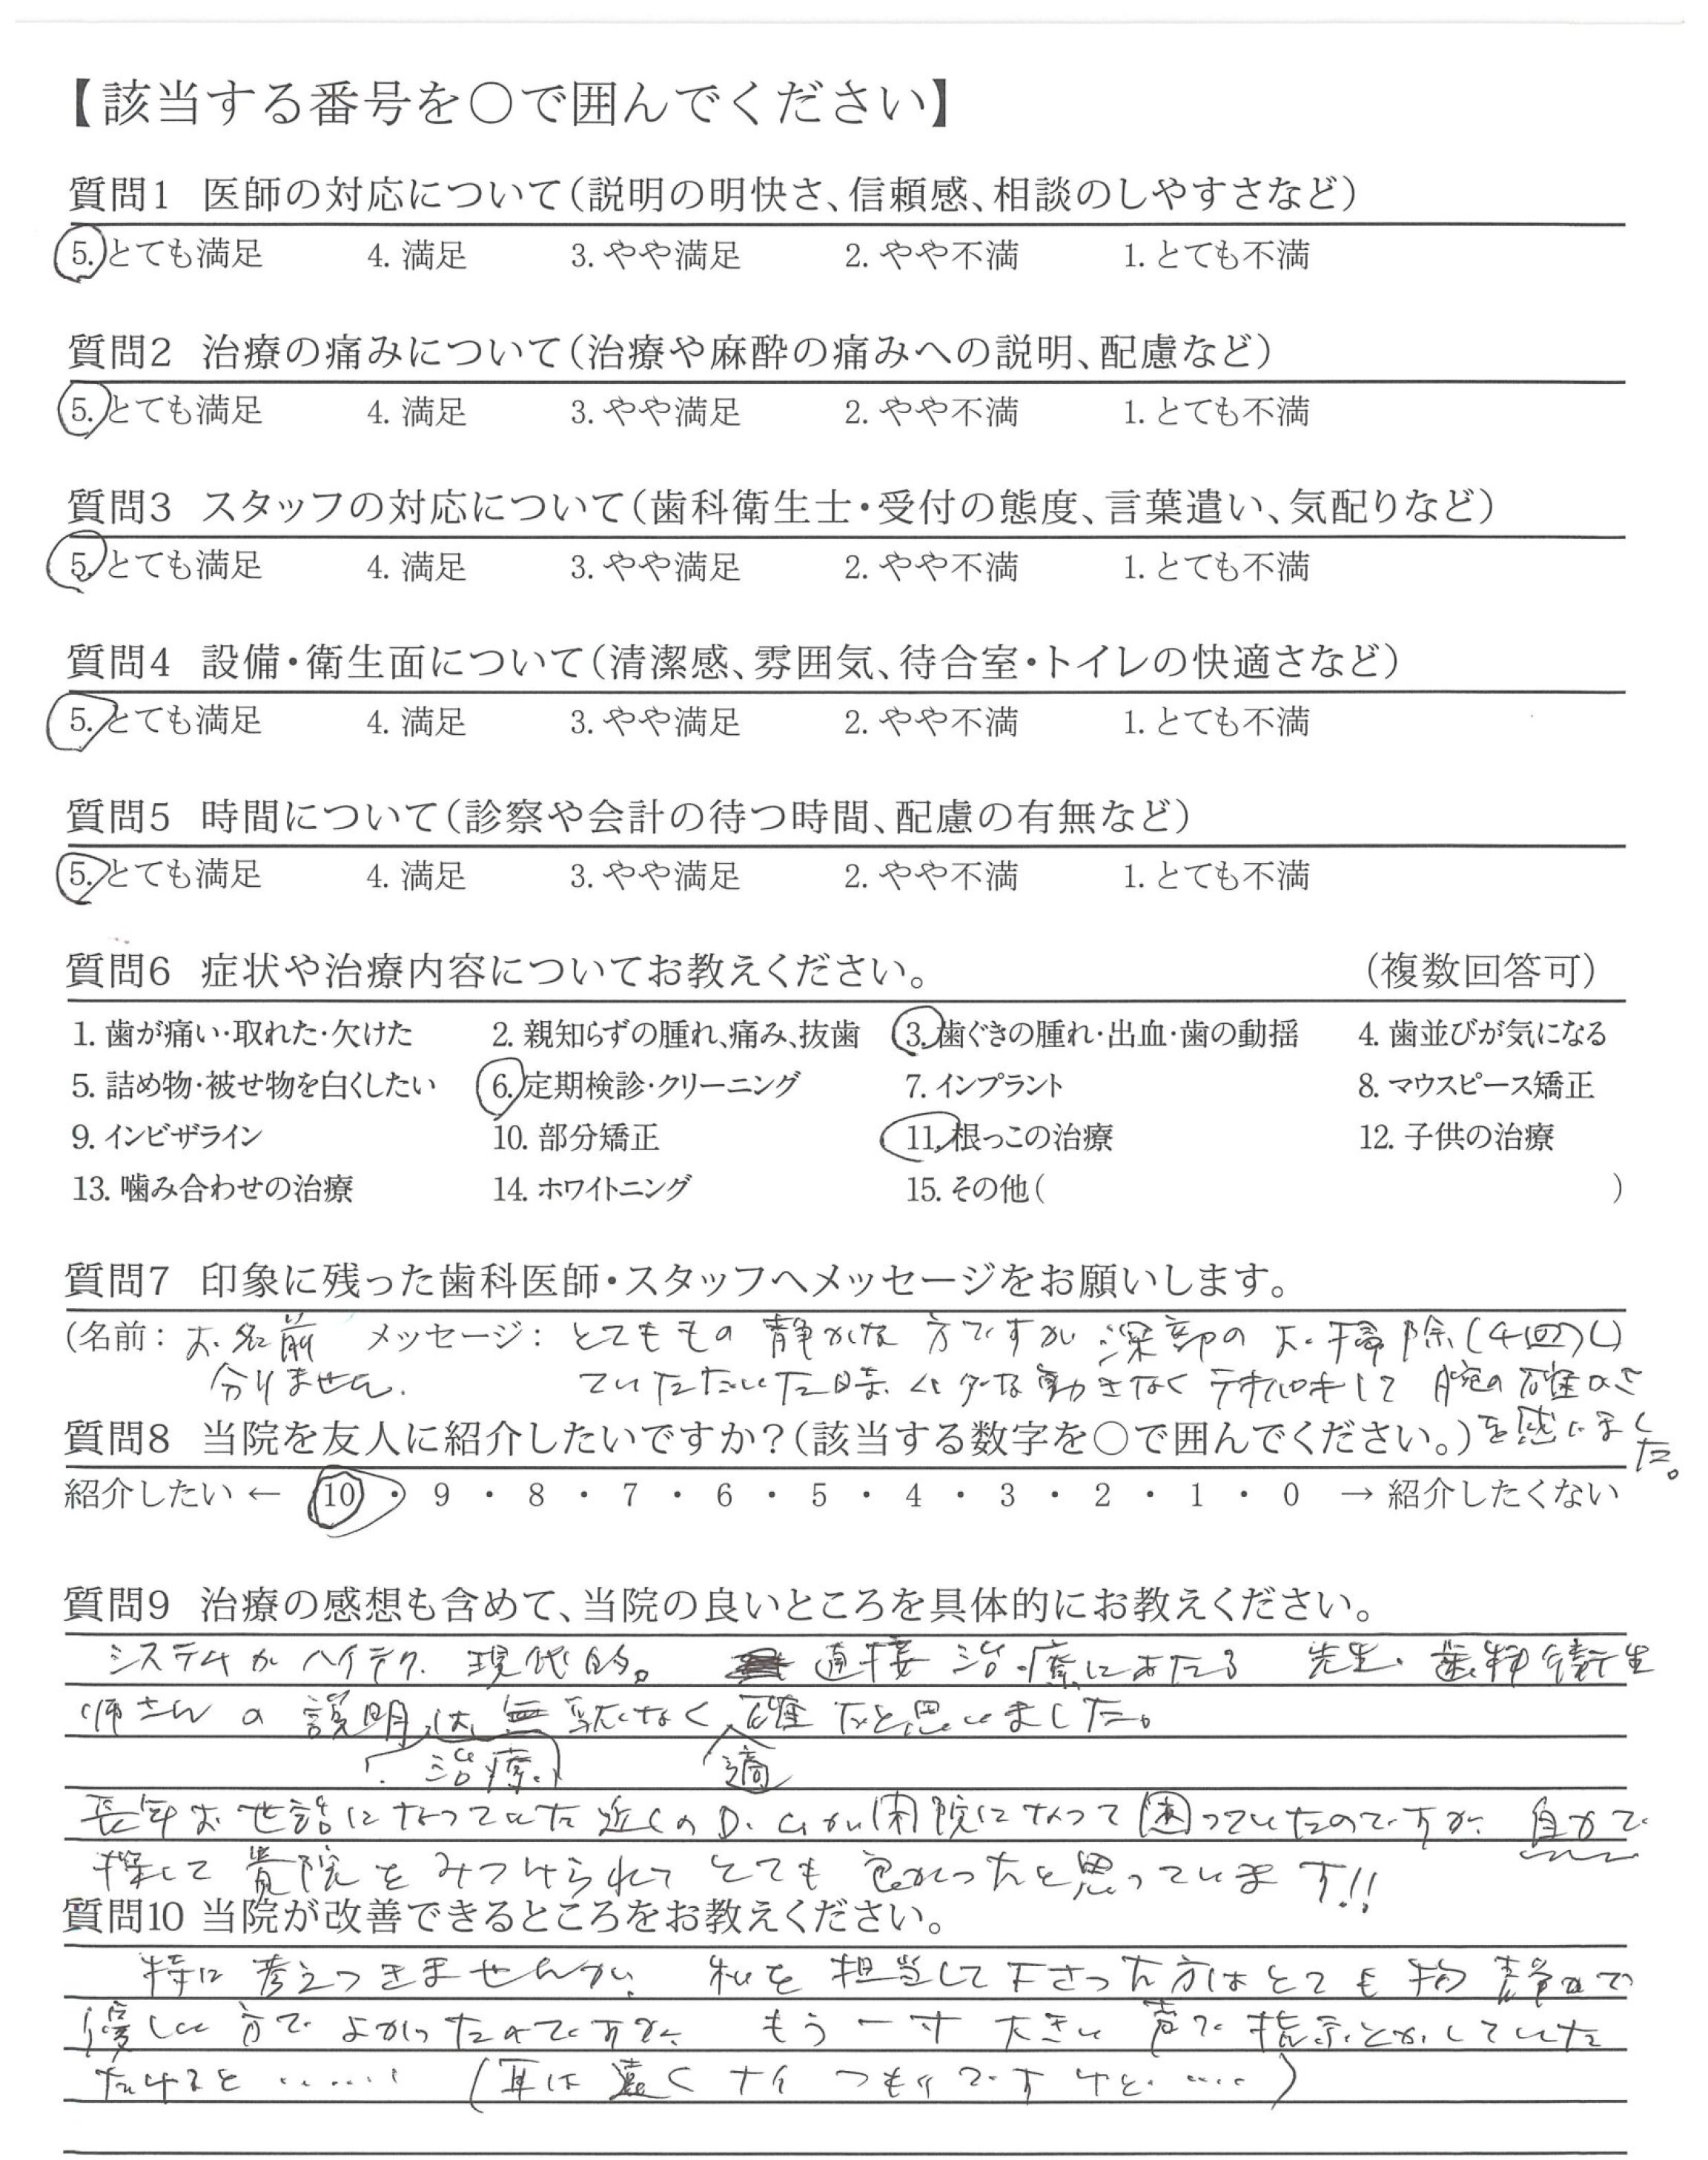 【該当する番号を○で囲んでください】
質問1 医師の対応について(説明の明快さ、信頼感、相談のしやすさなど)
5. とても満足 4. 満足 3. やや満足 2. やや不満 1. とても不満
質問2 治療の痛みについて(治療や麻酔の痛みへの説明、配慮など)
5. とても満足 4. 満足 3. やや満足 2. やや不満 1. とても不満
質問3 スタッフの対応について(歯科衛生士・受付の態度、言葉遣い、気配りなど)
5. とても満足 4. 満足 3. やや満足 2. やや不満 1. とても不満
質問4 設備・衛生面について(清潔感、雰囲気、待合室・トイレの快適さなど)
5. とても満足 4. 満足 3. やや満足 2. やや不満 1. とても不満
質問5 時間について(診察や会計の待つ時間、配慮の有無など)
5. とても満足 4. 満足 3. やや満足 2. やや不満 1. とても不満
質問6 症状や治療内容についてお教えください。 (複数回答可)
1. 歯が痛い・取れた・欠けた 2. 親知らずの腫れ、痛み、抜歯 3. 歯ぐきの腫れ・出血・歯の動揺 4. 歯並びが気になる
5. 詰め物・被せ物を白くしたい 6. 定期検診・クリーニング 7. インプラント 8. マウスピース矯正
9. インビザライン 10. 部分矯正 11. 根っこの治療 12. 子供の治療
13. 噛み合わせの治療 14. ホワイトニング 15. その他( )
質問7 印象に残った歯科医師・スタッフへメッセージをお願いします。
(名前: お名前 メッセージ: とてももの静かな方ですが深部のお掃除(4回)し
分りません. ていただいた時、ムダな動きなくテキパキして 腕の確かさ
質問8 当院を友人に紹介したいですか?(該当する数字を○で囲んでください。) を感じまし
た。
紹介したい ← 10 ・ 9 ・ 8 ・ 7 ・ 6 ・ 5 ・ 4 ・ 3 ・ 2 ・ 1 ・ 0 → 紹介したくない
質問9 治療の感想も含めて、当院の良いところを具体的にお教えください。
システムがハイテク. 現代的。 直接治療にあたる 先生・歯科衛生
師さんの説明は無駄なく 確だと思いました。
・治療 適
長年お世話になっていた近くのD.Cが閉院になって困っていたのですが、自分で
探して貴院をみつけられてとても良かったと思っています!!
質問10 当院が改善できるところをお教えください。
特に考えつきませんが、私を担当して下さった方はとても物静かで
優しい方でよかったのですが、もう一寸大きい声で指示とかしていた
だけると…… (耳は遠くナイつもりですけど……)